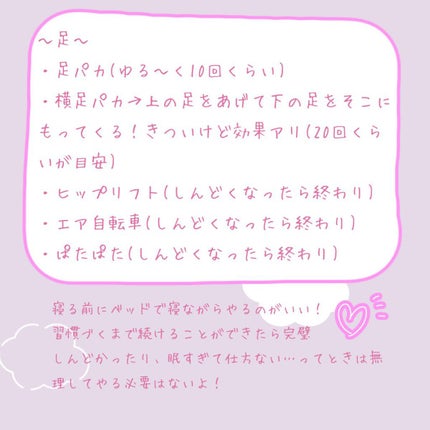 ～足～
・足パカ(ゆる～く10回くらい)
・横足パカ→上の足をあげて下の足をそこに
もってくる！きついけど効果アリ(20回くら
いが目安)
・ヒップリフト(しんどくなったら終わり)
・エア自転車(しんどくなったら終わり)
・ぱたぱた(しんどくなったら終わり)
寝る前にベッドで寝ながらやるのがいい！
習慣づくまで続けることができたら完璧
しんどかったり、眠すぎて仕方ない…ってときは無
理してやる必要はないよ！